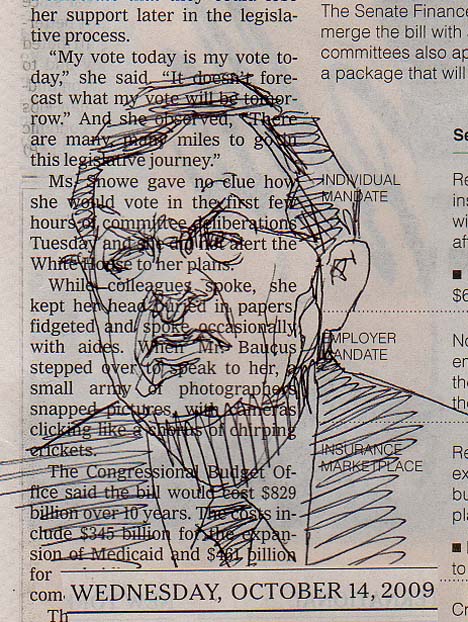 her support later in the legisla-
tive process.
"My vote today is my vote to-
day," she said. "It doesn't fore-
cast what my vote will be tomor-
row." And she observed, "There
are many, many miles to go in
this legislative journey."
Ms. Snowe gave no clue how
she would vote in the first few
hours of committee deliberations
Tuesday and she did not alert the
White House to her plans.
While colleagues spoke, she
kept her head buried in papers,
fidgeted and spoke occasionally
with aides. When Mr. Baucus
stepped over to speak to her, a
small army of photographers
snapped pictures, with cameras
clicking like a chorus of chirping
crickets.
The Congressional Budget Of-
fice said the bill would cost $829
billion over 10 years. The costs in-
clude $345 billion for the expan-
sion of Medicaid and $461 billion
for
com
Th
WEDNESDAY, OCTOBER 14, 2009
The Senate Finance
merge the bill with
committees also ap
a package that will
Se
INDIVIDUAL
MANDATE
Re
ins
wi
af
■
$6
EMPLOYER
MANDATE
No
en
the
the
INSURANCE
MARKETPLACE
Re
ex
bu
pla
■
to
Cr